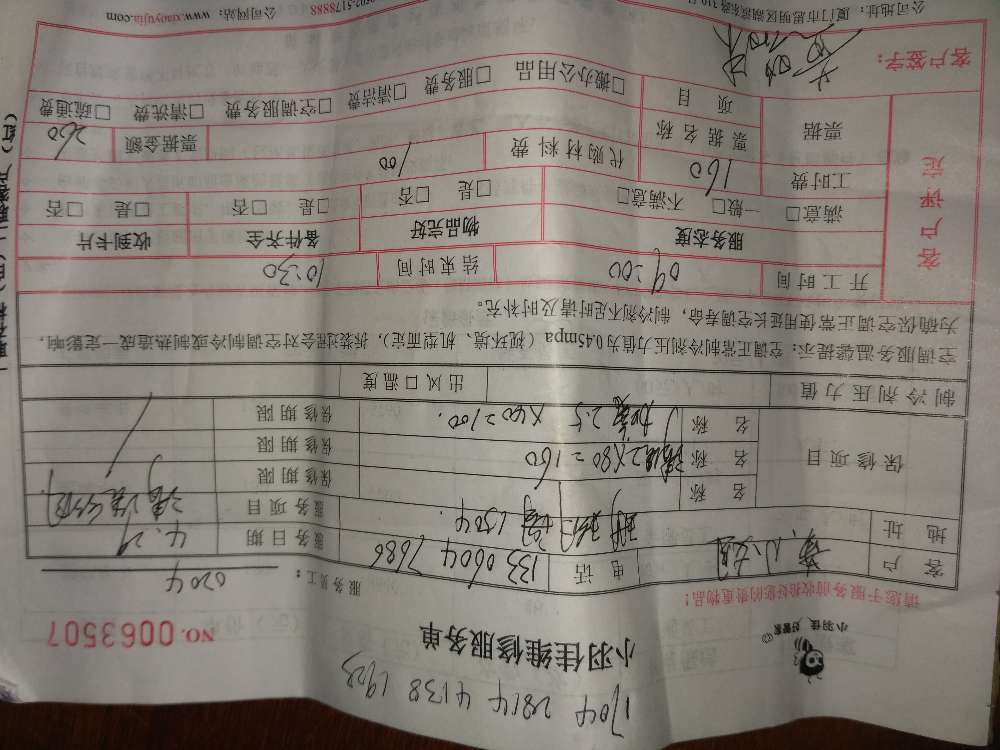 1704 2814 4138 1923
小羽佳维修服务单
NO. 0063507
小羽佳, 好管家
请您于服务前收拾好您的贵重物品!
服务员工: 0204
客户 电话 133 0604 7686 服务日期 4.29
地址 1504. 服务项目
保修项目 名称 保修期限
名称 2×80=160 保修期限
名称 2.5×40=100. 保修期限
制冷剂压力值 出风口温度
空调服务温馨提示: 空调正常制冷剂压力值为0.45mpa (视环境、机型而定), 拆装过程会对空调制冷或制热造成一定影响,
为确保空调正常使用延长空调寿命, 制冷剂不足时请及时补充。
客户评定
开工时间 09:00 结束时间 10:30
服务态度 物品完好 备件齐全 收到卡片
满意□ 一般□ 不满意□ □是 □否 □是 □否 □是 □否
工时费 160 代购材料费 100
票据 票据名称 票据金额 260
项目 □搬办公用品 □服务费 □清洁费 □空调服务费 □清洗费 □疏通费
客户签字:
公司网站: www.xiaoyujia.com